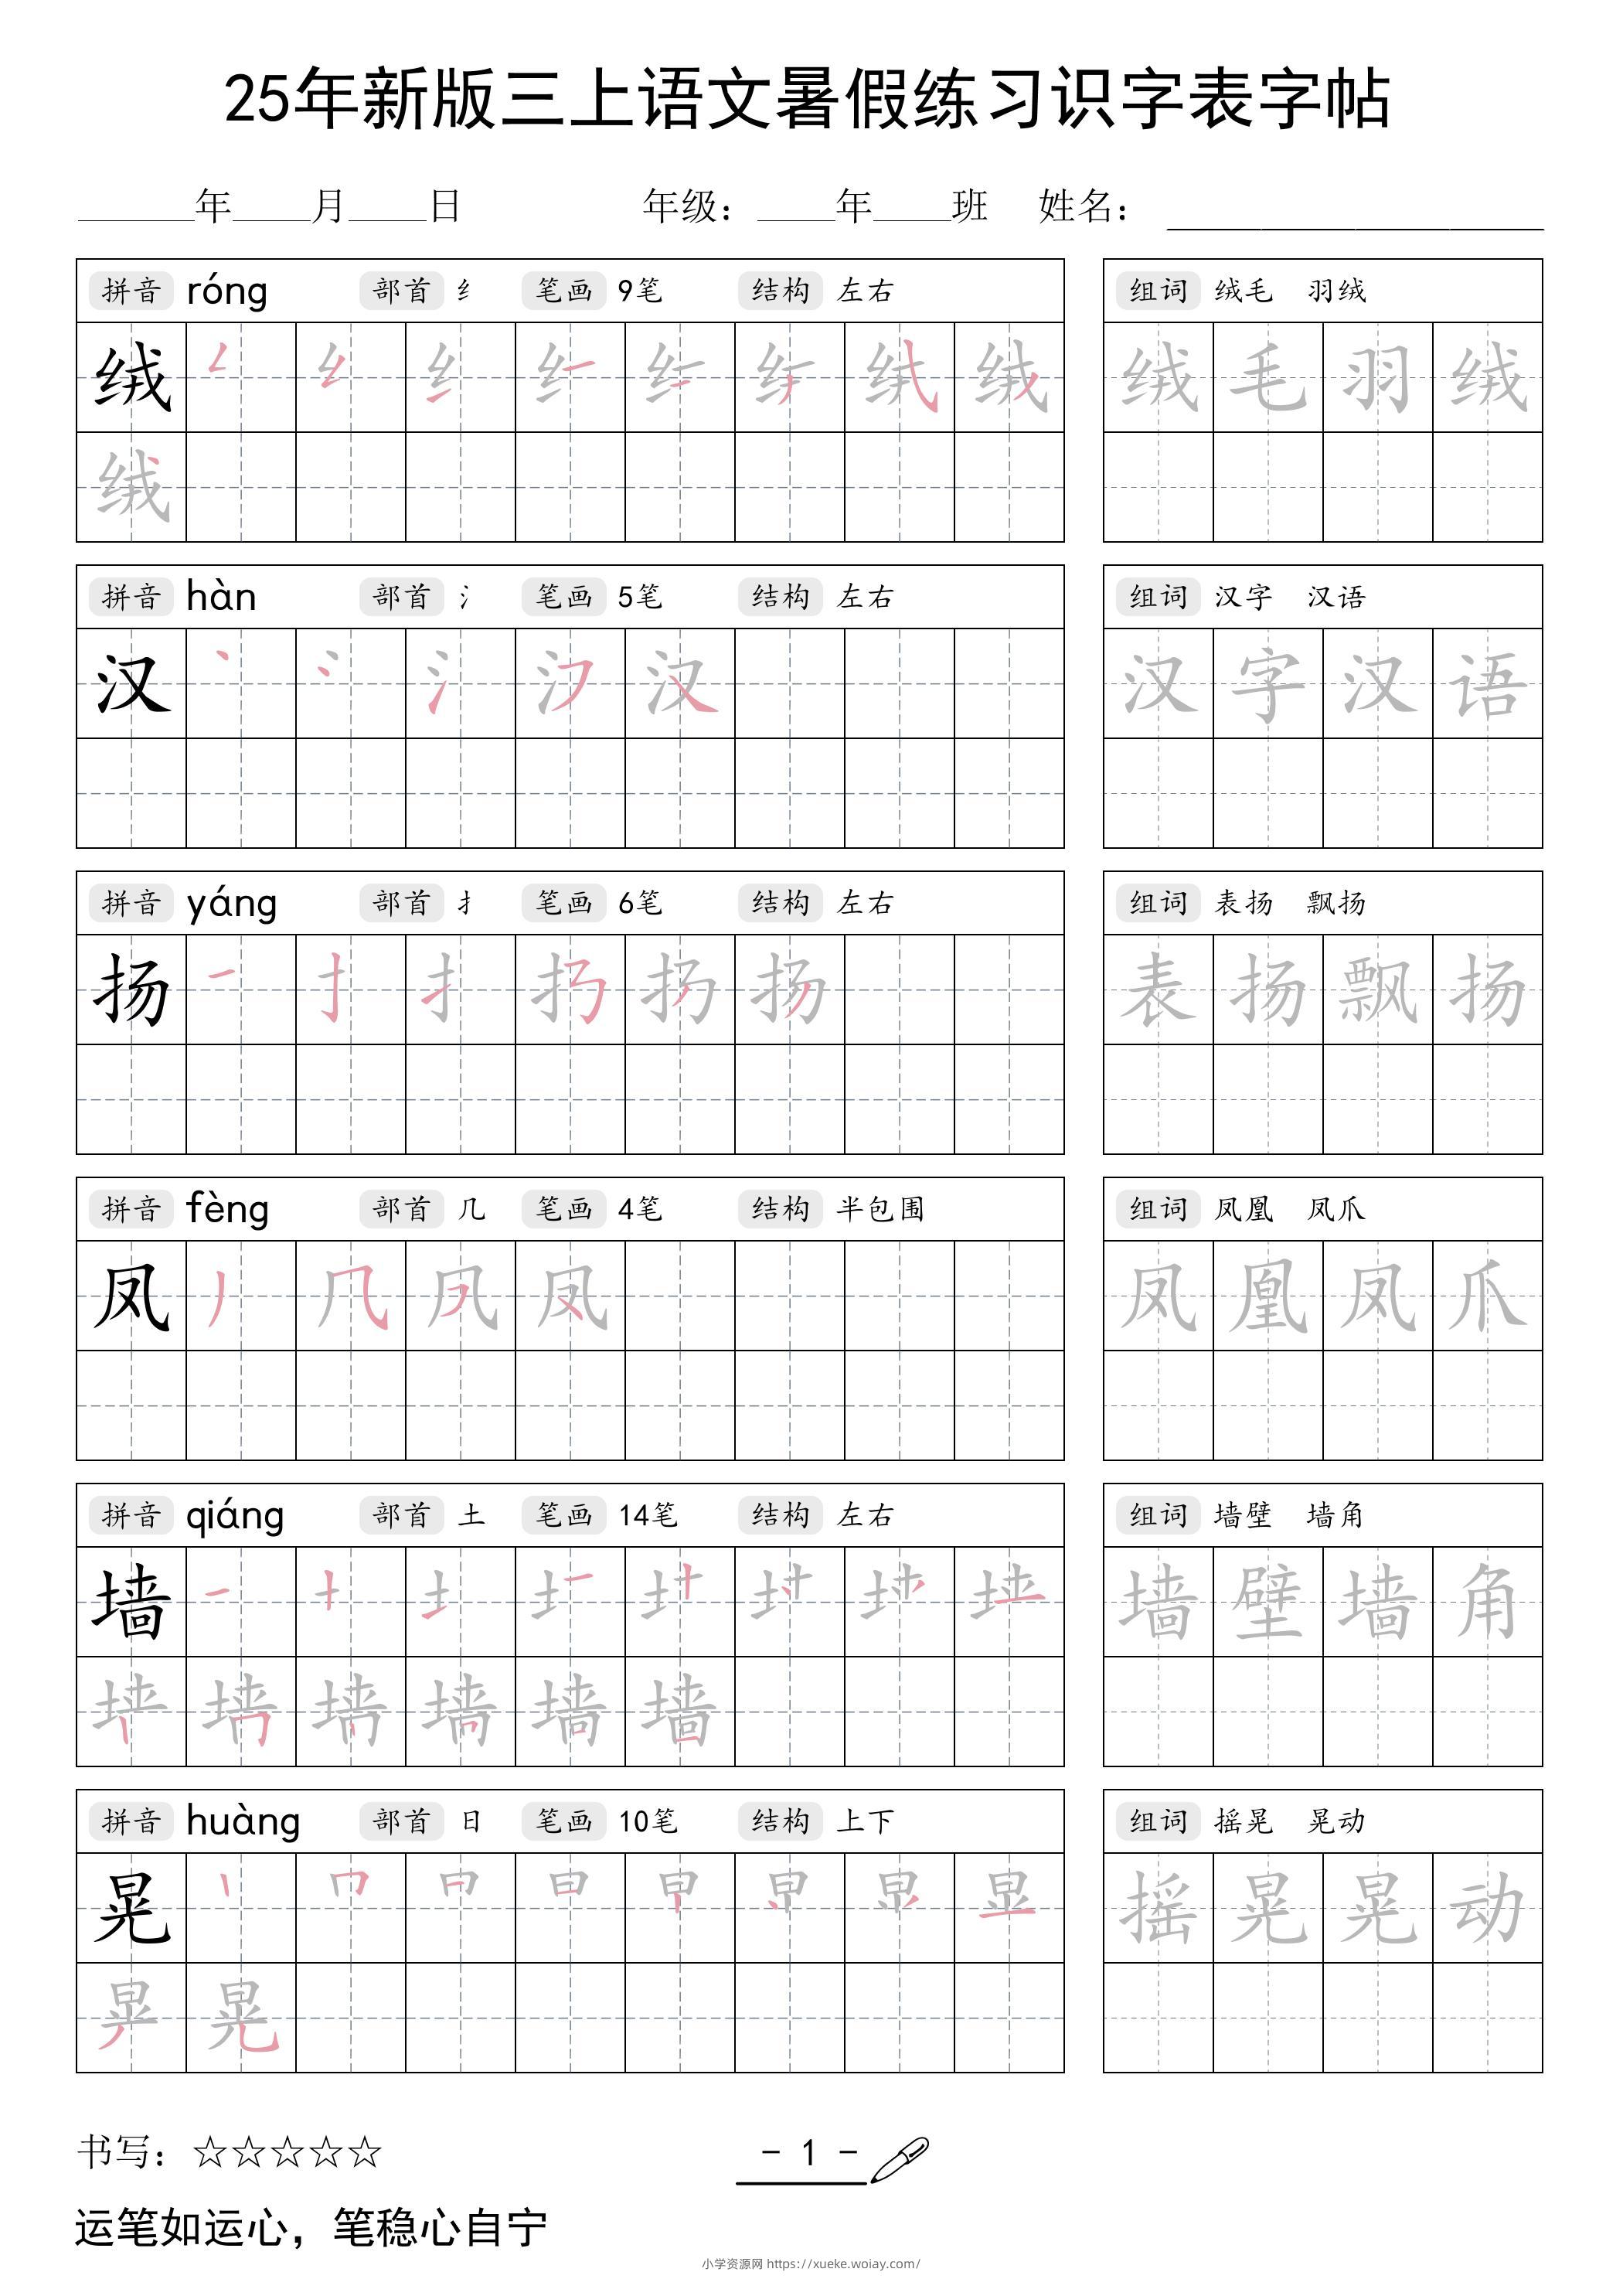 25年新版三上语文暑假练习识字表字帖
______年____月____日 年级：____年____班 姓名：
拼音 róng 部首 纟 笔画 9笔 结构 左右 组词 绒毛 羽绒
绒 绒 毛 羽 绒
绒
拼音 hàn 部首 氵 笔画 5笔 结构 左右 组词 汉字 汉语
汉 汉 字 汉 语
拼音 yáng 部首 扌 笔画 6笔 结构 左右 组词 表扬 飘扬
扬 表 扬 飘 扬
拼音 fèng 部首 几 笔画 4笔 结构 半包围 组词 凤凰 凤爪
凤 凤 凰 凤 爪
拼音 qiáng 部首 土 笔画 14笔 结构 左右 组词 墙壁 墙角
墙 墙 壁 墙 角
墙
拼音 huàng 部首 日 笔画 10笔 结构 上下 组词 摇晃 晃动
晃 摇 晃 晃 动
晃
书写：☆☆☆☆☆ - 1 -
运笔如运心，笔稳心自宁
小学资源网 https://xueke.woiay.com/